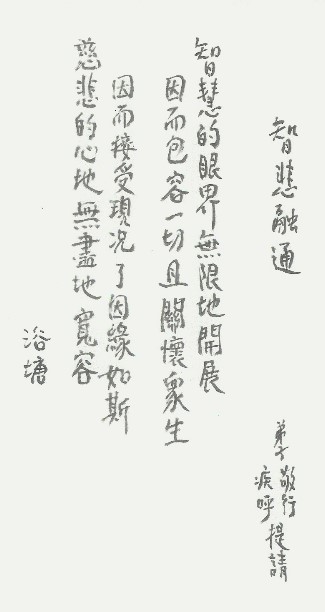 智悲融通
弟子敬行
疾呼提請
智慧的眼界無限地開展
因而包容一切且關懷眾生
因而接受現况了因緣如斯
慈悲的心地無盡地寬容
浴塘